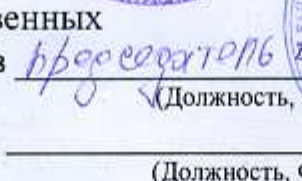 венных
в председатель
(Должность,
(Должность,